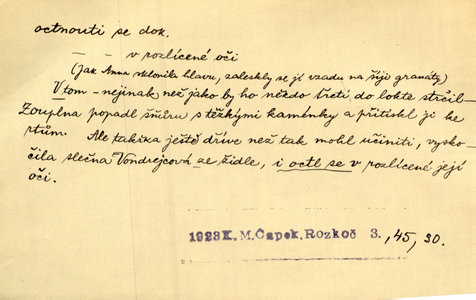 octnouti se dok.
— — v rozlícené oči
(Jak Anna sklonila hlavu, zaleskly se jí vzadu na šíji granáty)
V tom – nejinak než jako by ho někdo třetí do lokte strčil –
Zouplna popadl šňůru s těžkými kaménky a přitiskl ji ke
rtům. Ale takřka ještě dříve než tak mohl učiniti, vysko-
čila slečna Vondrejcová ze židle, i octl se v rozlícené její
oči.
1923K. M. Čapek, Rozkoč 3. ,45, 30.